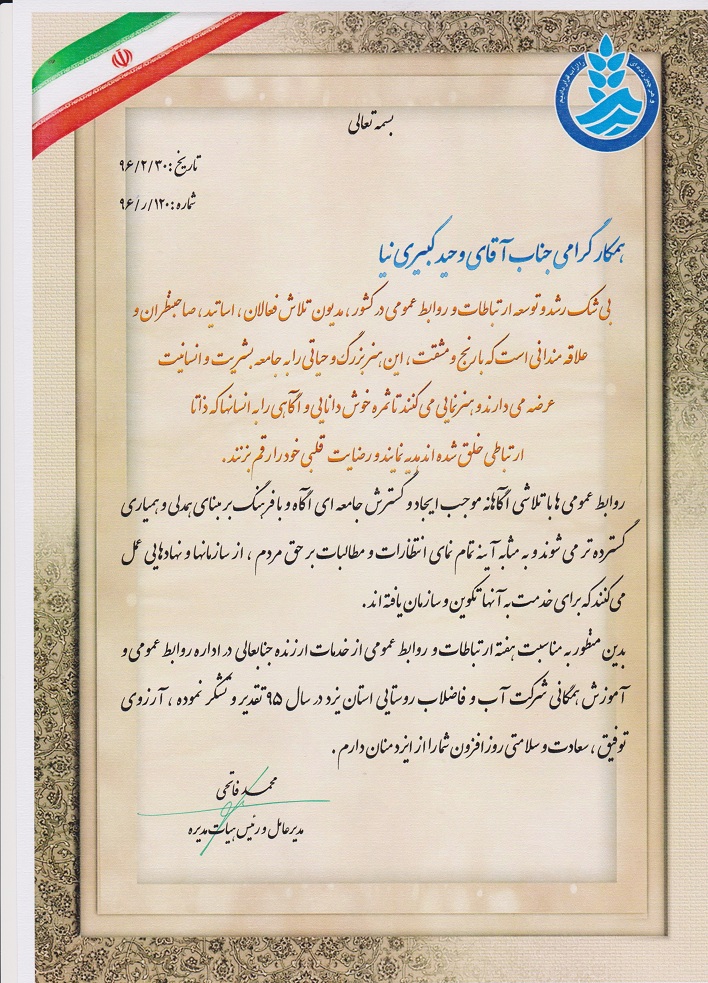 و هر چیز زنده‌ای را از آب قرار دادیم
بسمه تعالی
تاریخ: ۹۶/۲/۳۰
شماره: ۱۲۰/ر/۹۶
همکار گرامی جناب آقای وحید کبیری نیا
بی شک رشد و توسعه ارتباطات و روابط عمومی در کشور، مدیون تلاش فعالان، اساتید، صاحبنظران و
علاقه مندانی است که با رنج و مشقت، این هنر بزرگ و حیاتی را به جامعه بشریت و انسانیت
عرضه می دارند و هنرنمایی می کنند تا ثمره خوش دانایی و آگاهی را به انسانها که ذاتا
ارتباطی خلق شده اند هدیه نمایند و رضایت قلبی خود را رقم بزنند.
روابط عمومی ها با تلاشی آگاهانه موجب ایجاد و گسترش جامعه ای آگاه و با فرهنگ بر مبنای همدلی و همیاری
گسترده تر می شوند و به مثابه آینه تمام نمای انتظارات و مطالبات بر حق مردم ، از سازمانها و نهادهایی عمل
می کنند که برای خدمت به آنها تکوین و سازمان یافته اند.
بدین منظور به مناسبت هفته ارتباطات و روابط عمومی از خدمات ارزنده جنابعالی در اداره روابط عمومی و
آموزش همگانی شرکت آب و فاضلاب روستایی استان یزد در سال ۹۵ تقدیر و تشکر نموده ، آرزوی
توفیق ، سعادت و سلامتی روز افزون شما را از ایزد منان دارم .
محمد فاتحی
مدیرعامل و رئیس هیات مدیره